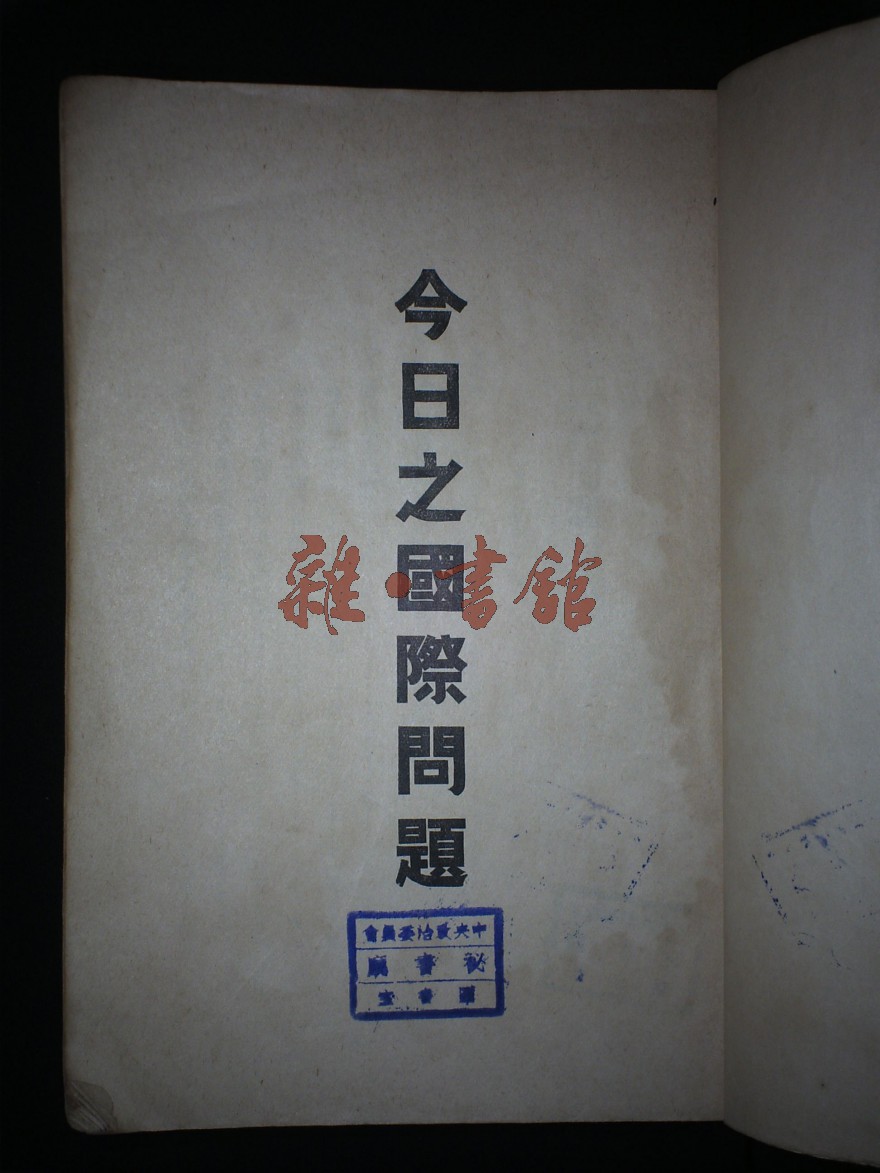 今日之國際問題
雜·書館
中央政治委員會
秘書廳
圖書室